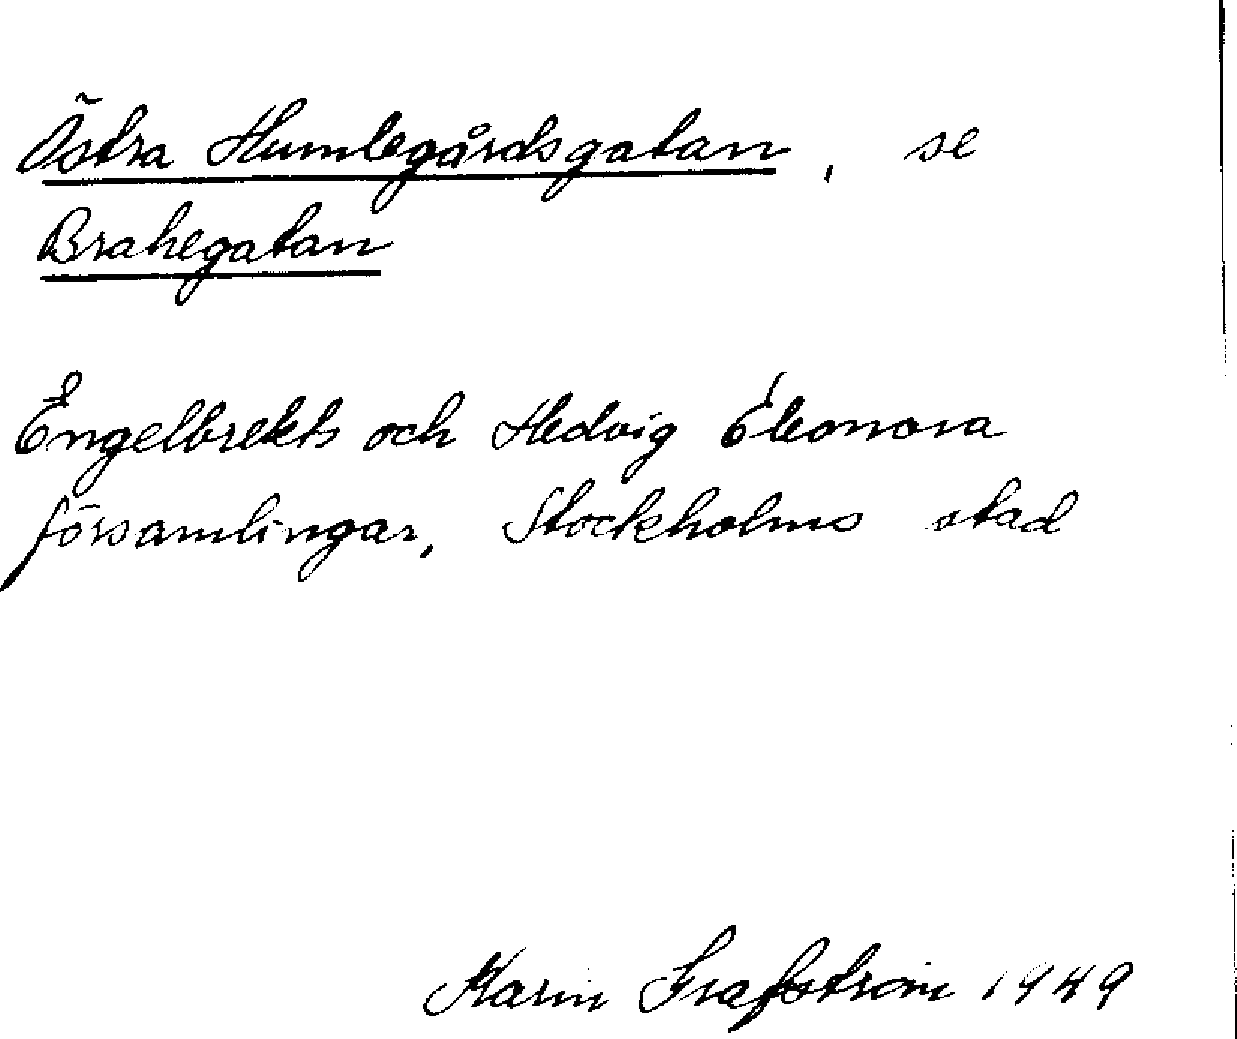 Östra Humlegårdsgatan, se
Brahegatan
Engelbrekts och Hedvig Eleonora
församlingar, Stockholms stad
Karin Grafström 1949